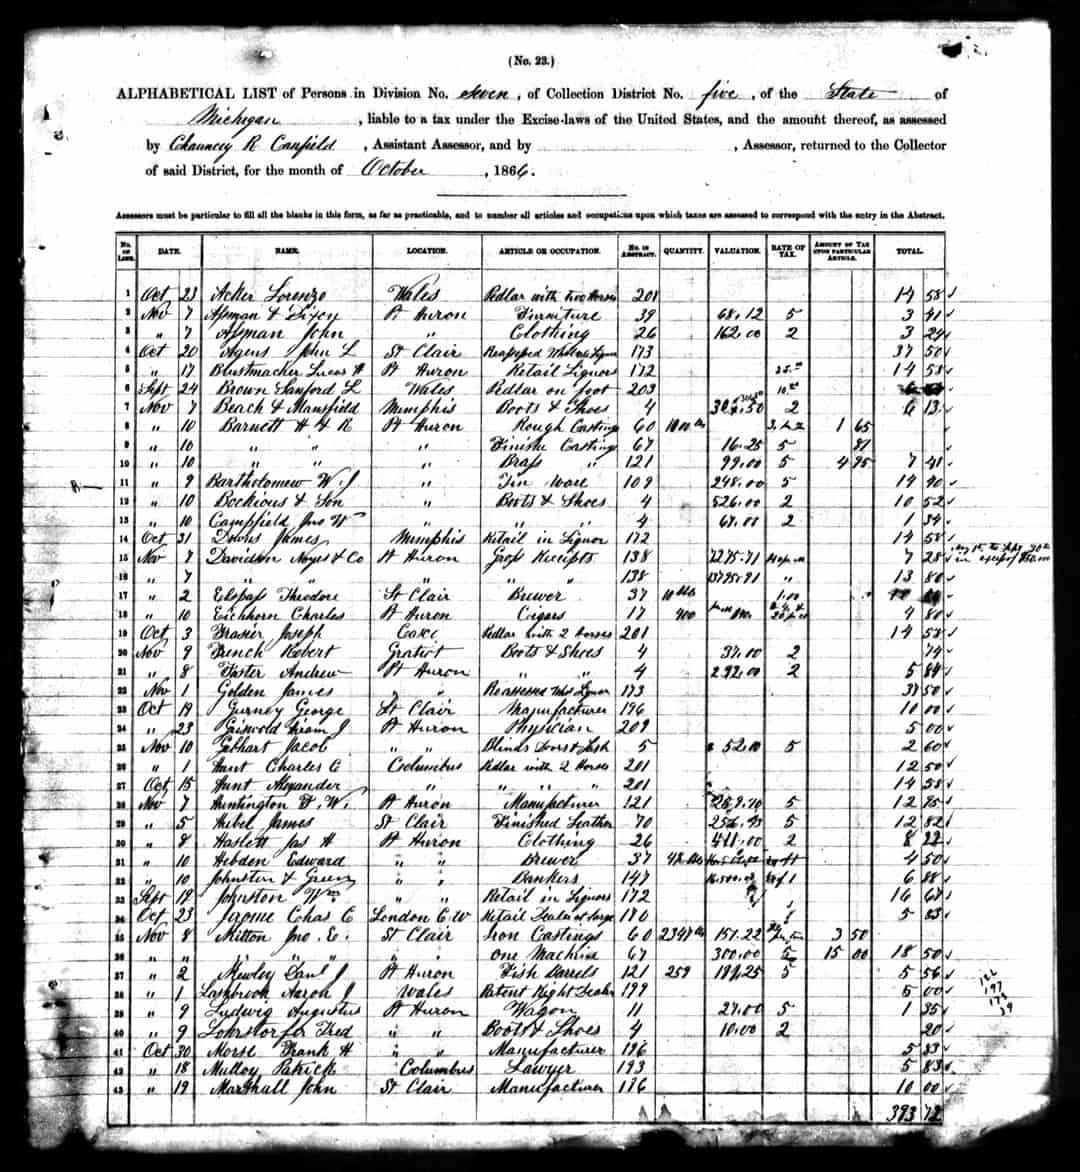 (No. 23.)
ALPHABETICAL LIST of Persons in Division No. seven, of Collection District No. five, of the State of
Michigan, liable to a tax under the Excise-laws of the United States, and the amount thereof, as assessed
by Chauncey R Canfield, Assistant Assessor, and by , Assessor, returned to the Collector
of said District, for the month of October, 1866.
Assessors must be particular to fill all the blanks in this form, as far as practicable, and to number all articles and occupations upon which taxes are assessed to correspond with the entry in the Abstract.
No. of Line. DATE. NAME. LOCATION. ARTICLE OR OCCUPATION. No. in Abstract. QUANTITY. VALUATION. RATE OF TAX. AMOUNT OF TAX UPON PARTICULAR ARTICLE. TOTAL.
1 Oct 23 Acker Lorenzo Wales Pedlar with two Horses 201 14 58
2 Nov 7 Assman & Pt Huron Furniture 39 68.12 5 3 41
3 " 7 Assman John " Clothing 26 162.00 2 3 24
4 Oct 20 Agens John L St Clair 173 37 50
5 " 17 Blustmacher Lucas H Pt Huron Retail Liquors 172 14 58
6 Sept 24 Brown Sanford L Wales Pedlar on foot 203
7 Nov 7 Beach & Mansfield Memphis Boots & Shoes 4 2 6 13
8 " 10 Barnett H & R Pt Huron Rough Castings 60 1 65
9 " 10 " " " Castings 67 16.25 5 81
10 " 10 " " " Brass " 121 99.00 5 4 95 7 41
11 " 9 Bartholomew W. J " Tin Ware 109 298.00 5 14 90
12 " 10 Bockious & Son " Boots & Shoes 4 526.00 2 10 52
13 " 10 Campfield Jno W " " " 4 67.00 2 1 34
14 Oct 31 Downs James Memphis Retail in Liquor 172 14 58
15 Nov 7 Davidson Noyes & Co Pt Huron Gross Receipts 138 2275.71 7 28
16 " 7 " " " " " 138 " 13 80
17 " 2 Theodore St Clair Brewer 37 1.00
18 " 10 Eichhorn Charles Pt Huron Cigars 17 400 4 80
19 Oct 3 Frasier Joseph Pedlar with 2 Horses 201 14 58
20 Nov 9 French Robert Gratiot Boots & Shoes 4 37.00 2 74
21 " 8 Foster Andrew Pt Huron " " 4 292.00 2 5 84
22 Nov 1 Golden James " " 173 37 50
23 Oct 19 Gurney George St Clair Manufacturer 196 10 00
24 " 23 Griswold Hiram J Pt Huron Physician 209 5 00
25 Nov 10 Gebhart Jacob " " Blinds Doors & Sash 5 52.00 5 2 60
26 " 1 Hunt Charles C Columbus Pedlar with 2 Horses 201 12 50
27 Oct 15 Hunt Alexander " " " " " 201 14 58
28 Nov 7 Huntington F. W. Pt Huron Manufacturer 121 259.10 5 12 95
29 " 5 Hebel James St Clair Finished Leather 70 256.43 5 12 82
30 " 8 Haslett Jas H Pt Huron Clothing 26 411.00 2 8 22
31 " 10 Hebden Edward " " Brewer 37 4 50
32 " 10 Johnston & Green " " Bankers 147 6 88
33 Sept 19 Johnston Wm " " Retail in Liquors 172 16 67
34 Oct 23 Jerome Chas C London C W Retail Dealer 180 5 83
35 Nov 8 Mitton Jno. E. St Clair Iron Castings 60 2347 lb 151.22 3 50
36 " " " " " one Machine 67 300.00 5 15 00 18 50
37 " 2 J Pt Huron Fish Barrels 121 259 5 5 56
38 " 1 Lashbrook Aaron J Wales Patent Right Dealer 199 5 00
39 " 9 Ludwig Augustus Pt Huron Wagon 11 27.00 5 1 35
40 " 9 Fred " " Boots & Shoes 4 10.00 2 20
41 Oct 30 Morse Frank H " " Manufacturer 196 5 83
42 " 18 Mulloy Patrick Columbus Lawyer 193 5 83
43 " 19 Marshall John St Clair Manufacturer 196 10 00
393 72